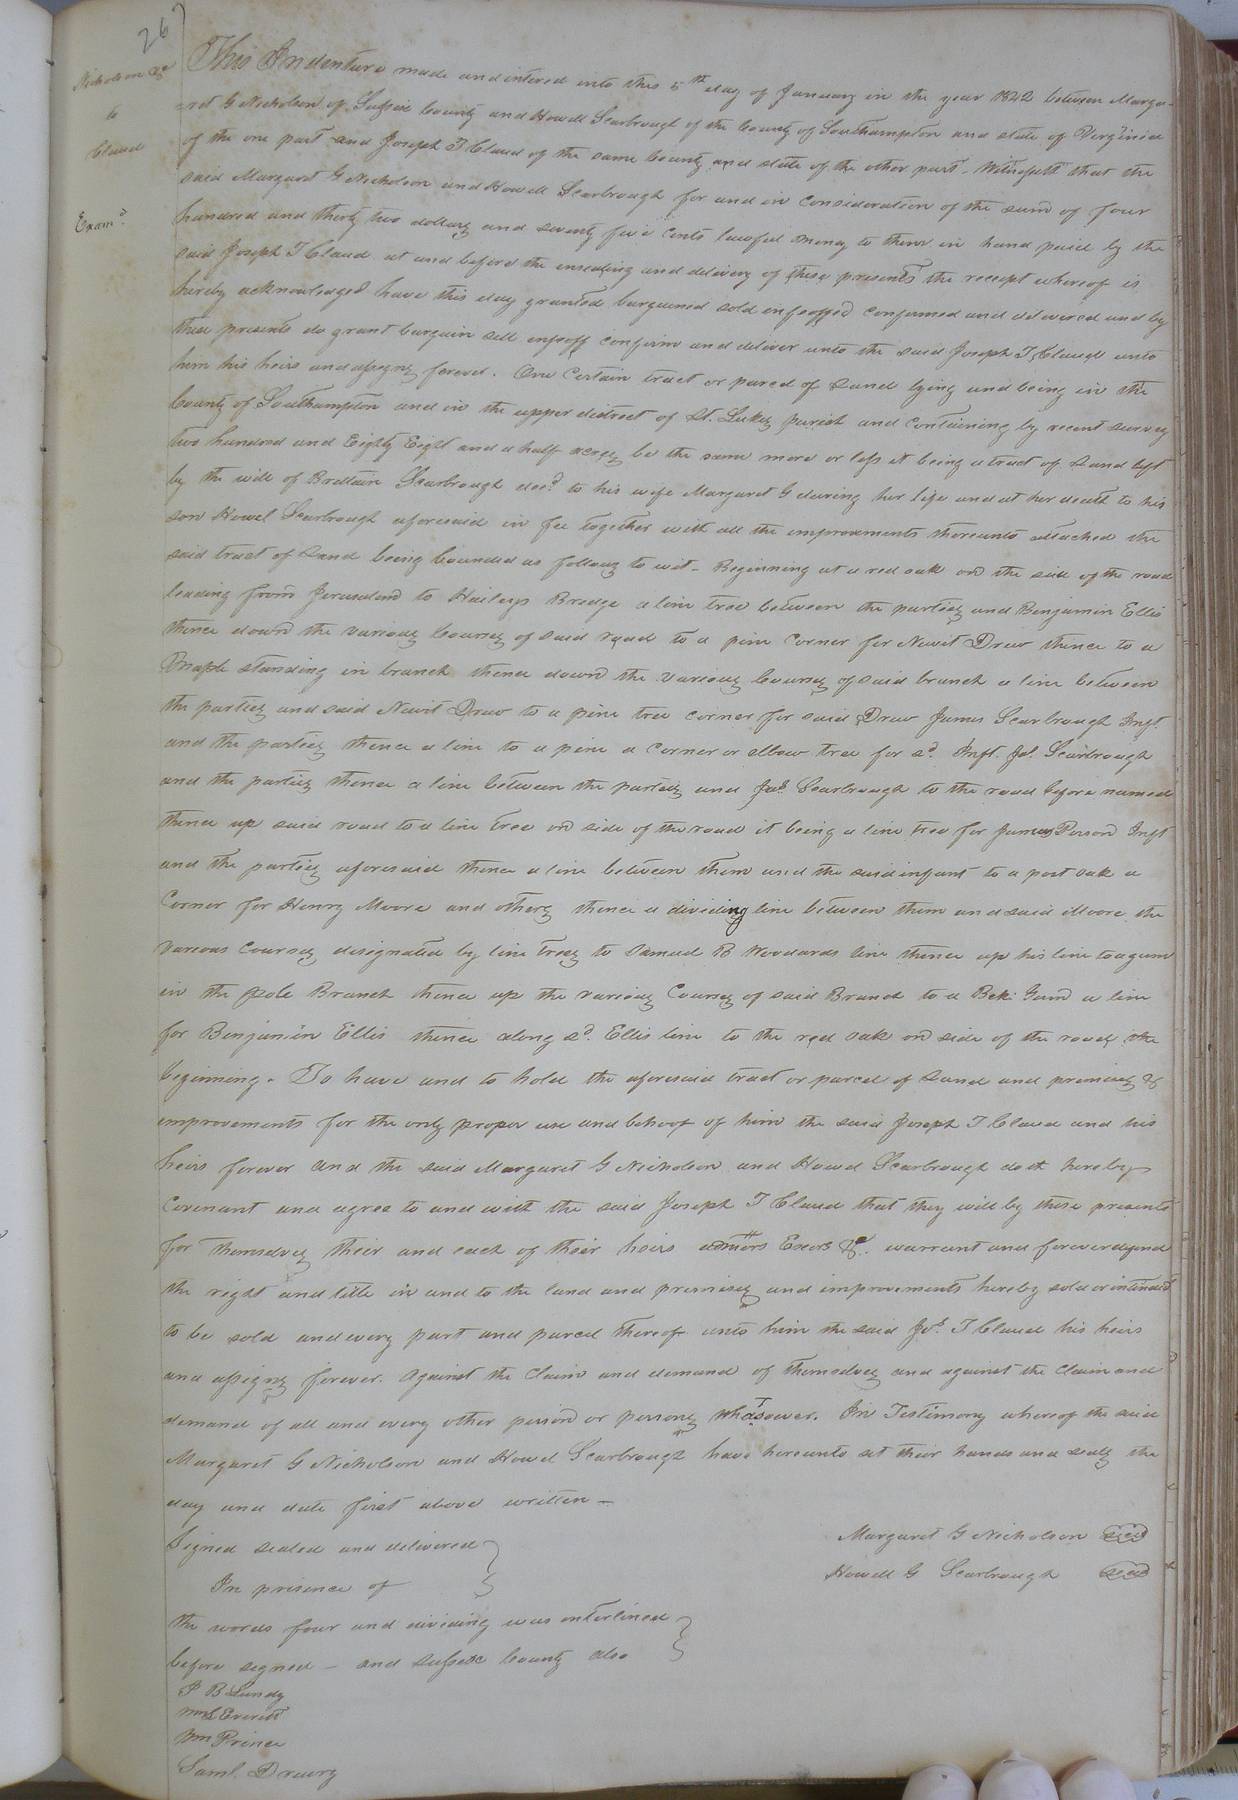 267
Nicholson &c
to
Claud
Exam.d
This Indenture made and intered into this 5th day of January in the year 1842 between Marga-
-ret G Nicholson of Sussex County and Howell Scarbrough of the County of Southampton and state of Virginia
of the one part and Joseph T Claud of the same County and state of the other part. Witnesseth that the
said Margaret G Nicholson and Howell Scarbrough for and in consideration of the sum of four
hundred and thirty two dollars and seventy five cents lawful money to them in hand paid by the
said Joseph T Claud at and before the ensealing and delivery of these presents the receipt whereof is
hereby acknowledged have this day granted bargained sold enfeoffed confirmed and delivered and by
these presents do grant bargain sell enfeoff confirm and deliver unto the said Joseph T Claud unto
him his heirs and assigns forever. One Certain tract or parcel of Land lying and being in the
County of Southampton and in the upper district of St. Lukes parish and containing by recent survey
two hundred and Eighty Eight and a half acres be the same more or less it being a tract of Land left
by the will of Brittain Scarbrough decd to his wife Margaret G during her life and at her death to his
son Howel Scarbrough aforesaid in fee together with all the improvments thereunto attached the
said tract of Land being bounded as follows to wit. Beginning at a red oak on the side of the road
leading from Jerusalem to Haileys Bredge a line tree between the parties and Benjamin Ellis
thence down the various Courses of said road to a pine corner for Newit Drew thence to a
Maple standing in branch thence down the various Courses of said branch a line between
the parties and said Newit Drew to a pine tree corner for said Drew James Scarbrough Inft.
and the parties thence a line to a pine a corner or elbow tree for sd. Inft. Js. Scarbrough
and the parties thence a line between the parties and Jas. Scarbrough to the road before named
thence up said road to a line tree on side of the road it being a line tree for James Person Inft
and the parties aforesaid thence a line between them and the said infant to a post oak a
Corner for Henry Moore and others thence a dividing line between them and said Moore the
various Courses designated by line trees to Samuel B Woodards line thence up his line to a gum
in the pole Branch thence up the various Courses of said Branch to a Gum a line
for Benjamin Ellis thence along sd. Ellis line to the red oak on side of the road the
beginning. To have and to hold the aforesaid tract or parcel of Land and premises &
improvements for the only proper use and behoof of him the said Joseph T Claud and his
heirs forever and the said Margaret G Nicholson and Howel Scarbrough doth hereby
Covenant and agree to and with the said Joseph T Claud that they will by these presents
for themselves their and each of their heirs admors Exors &c. warrant and forever defend
the right and title in and to the land and premises and improvements hereby sold or intended
to be sold and every part and parcel thereof unto him the said Jos. T Claud his heirs
and assigns forever. Against the Claim and demand of themselves and against the Claim and
demand of all and every other person or persons whatsoever. In Testimony whereof the said
Margaret G Nicholson and Howel Scarbrough have hereunto set their hands and seals the
day and date first above written —
Signed sealed and delivered
In presence of
Margaret G Nicholson seal
Howell G Scarbrough seal
the words four and dividing was enterlined
before signed — and Sussex County also
P B Lundy
Wm Prince
Saml. Drewry